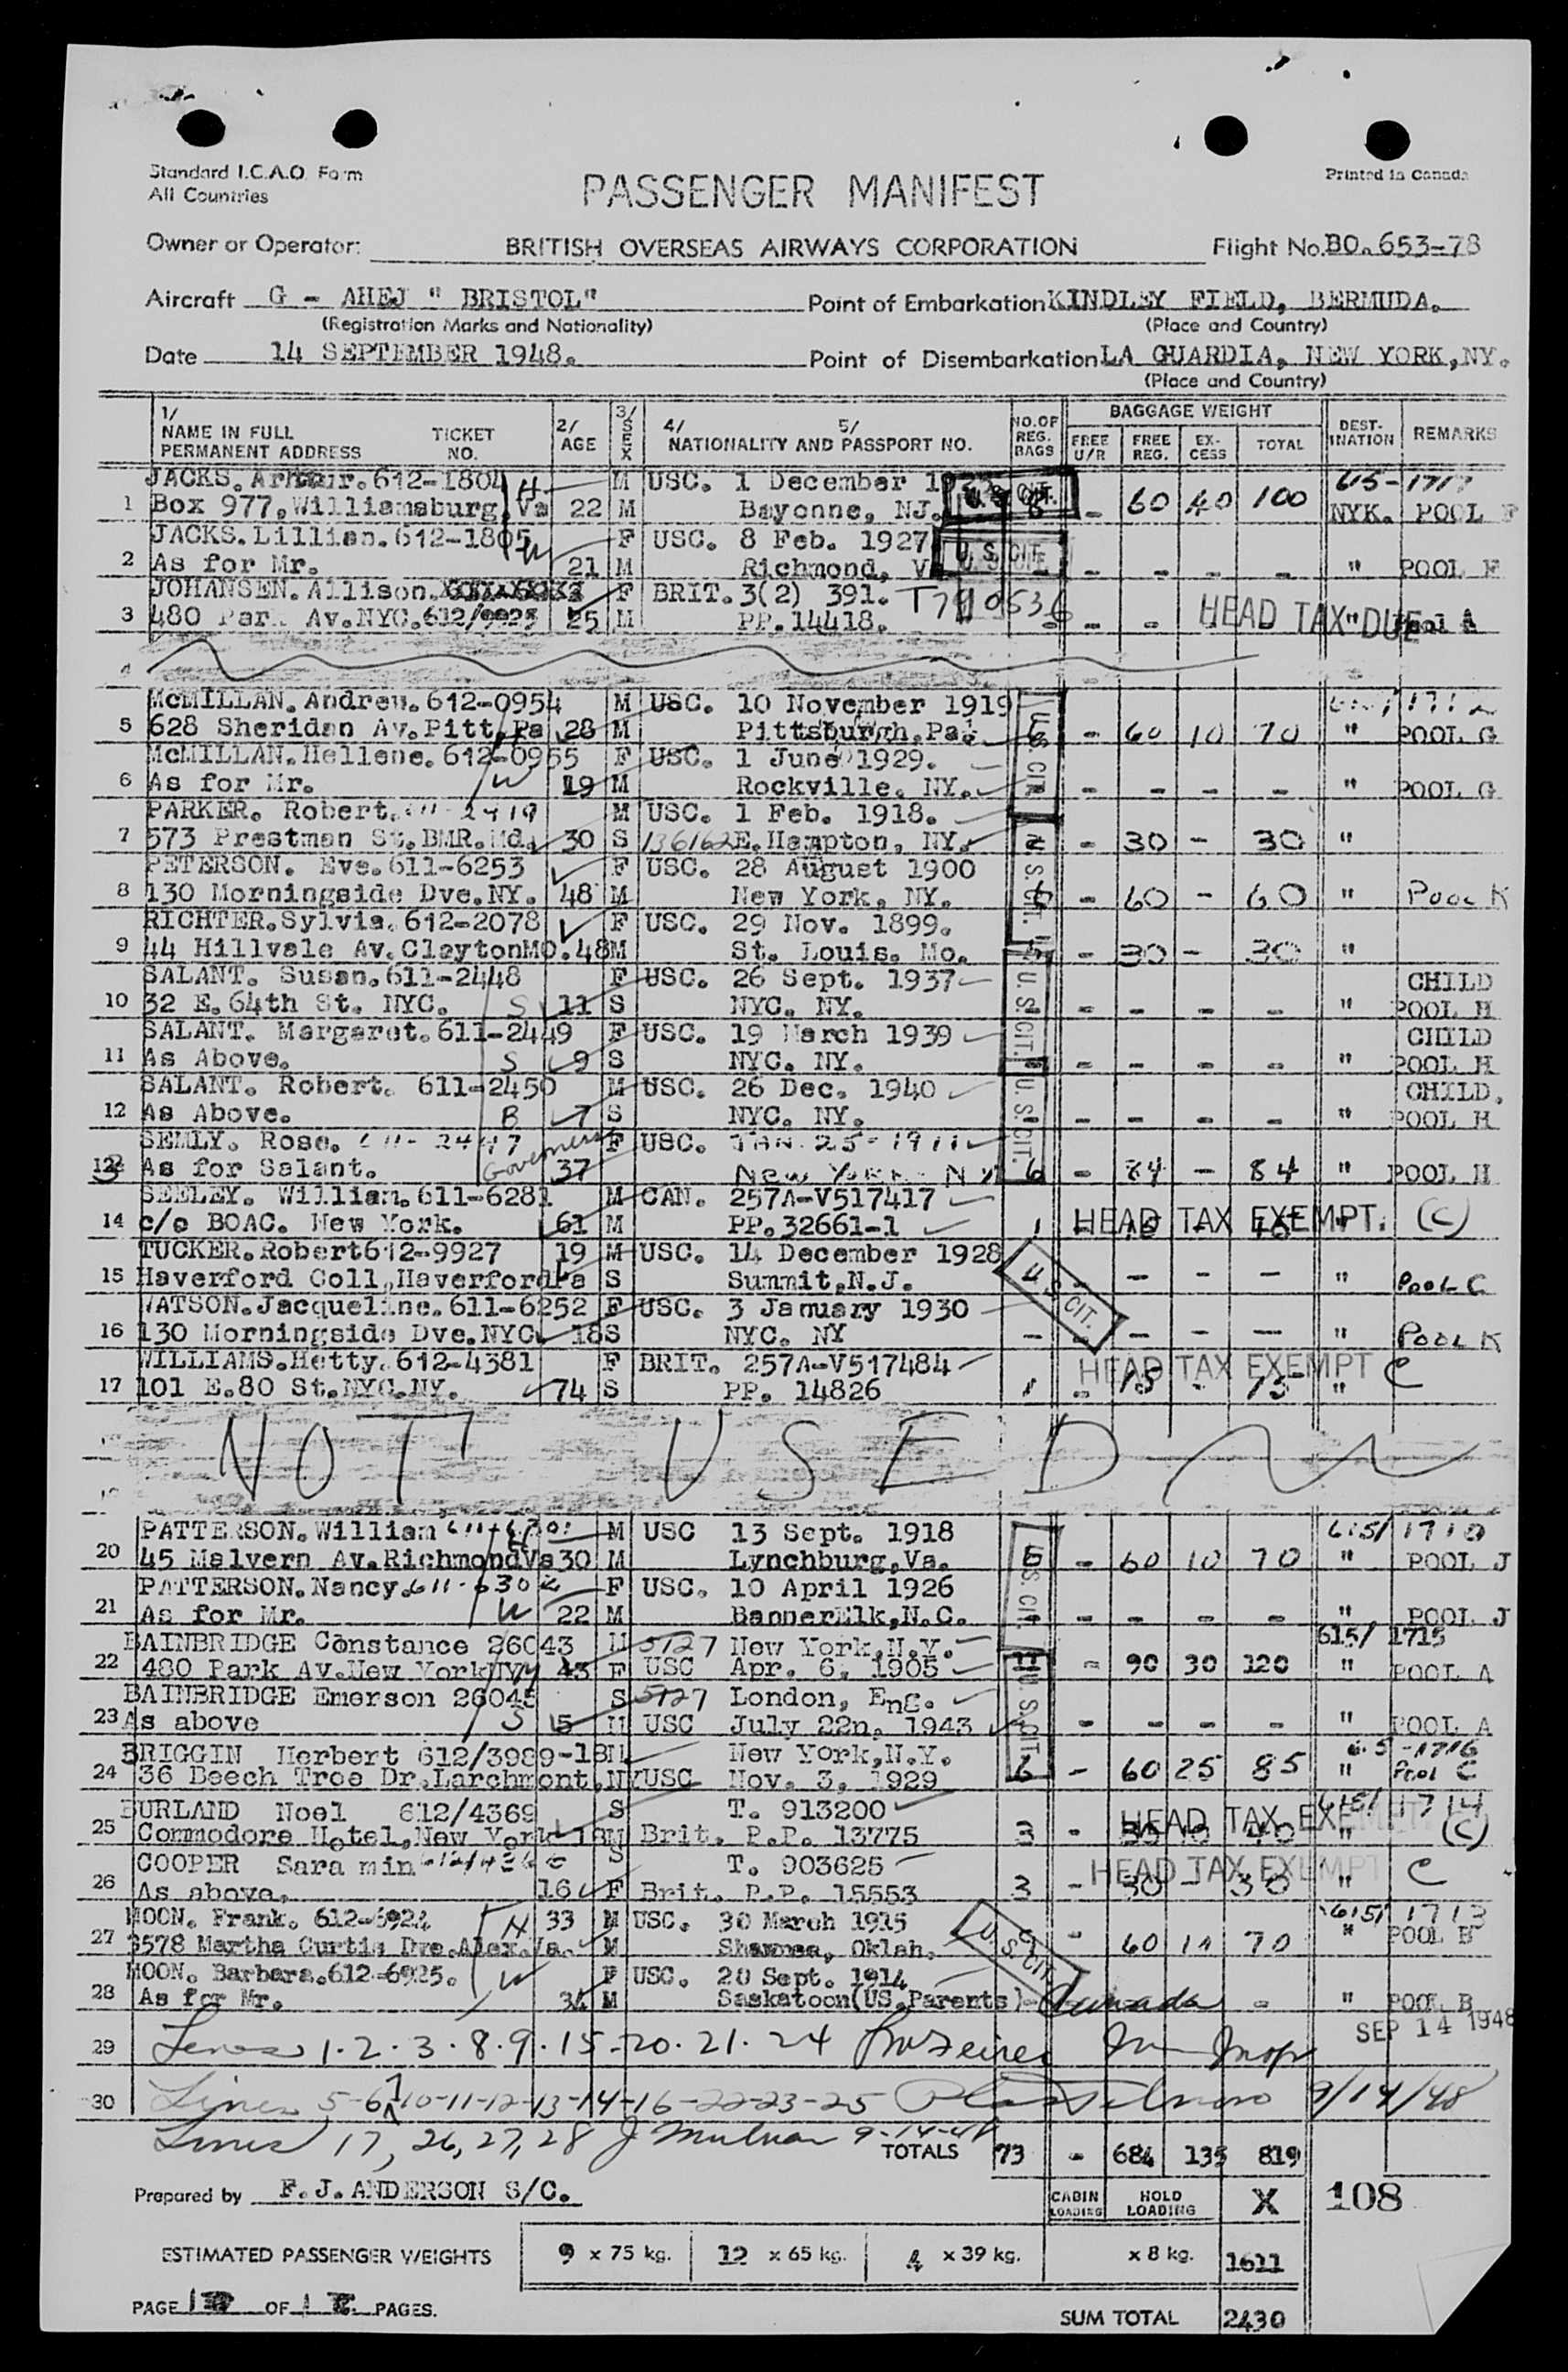 Standard I.C.A.O. Form
All Countries
Printed in Canada
PASSENGER MANIFEST
Owner or Operator: BRITISH OVERSEAS AIRWAYS CORPORATION Flight No. BO. 653-78
Aircraft G - AHEJ " BRISTOL" Point of Embarkation KINDLEY FIELD, BERMUDA.
(Registration Marks and Nationality) (Place and Country)
Date 14 SEPTEMBER 1948. Point of Disembarkation LA GUARDIA, NEW YORK, NY.
(Place and Country)
1/ NAME IN FULL PERMANENT ADDRESS TICKET NO. 2/ AGE 3/ SEX 4/ 5/ NATIONALITY AND PASSPORT NO. NO. OF REG. BAGS BAGGAGE WEIGHT FREE U/R FREE REG. EX-CESS TOTAL DEST-INATION REMARKS
JACKS. Arthur. 612-1804 H M USC. 1 December 615-1717
1 Box 977, Williamsburg, Va 22 M Bayonne, NJ. U.S. CIT. - 60 40 100 NYK. POOL F
JACKS. Lillian. 612-1805 W F USC. 8 Feb. 1927
2 As for Mr. 21 M Richmond, U.S. CIT. - - - - " POOL F
JOHANSEN. Allison. F BRIT. 3(2) 391.
3 480 Park Av. NYC. 612/9925 25 M PP. 14418. - - - HEAD TAX DUE " Pool A
4
McMILLAN. Andrew. 612-0954 M USC. 10 November 1919 615/1712
5 628 Sheridan Av. Pitt, Pa 28 M Pittsburgh, Pa. U.S. CIT. - 60 10 70 " POOL G
McMILLAN. Hellene. 612-0955 F USC. 1 June 1929.
6 As for Mr. W 19 M Rockville, NY. - - - - " POOL G
PARKER. Robert. 611-2419 M USC. 1 Feb. 1918.
7 573 Prestman St. BMR. Md. 30 S 136162 E. Hampton, NY. 2 - 30 - 30 "
PETERSON. Eve. 611-6253 F USC. 28 August 1900
8 130 Morningside Dve. NY. 48 M New York, NY. U.S. CIT. - 60 - 60 " POOL K
RICHTER. Sylvia. 612-2078 F USC. 29 Nov. 1899.
9 44 Hillvale Av. Clayton MO. 48 M St. Louis. Mo. - 30 - 30 "
SALANT. Susan. 611-2448 F USC. 26 Sept. 1937 CHILD
10 32 E. 64th St. NYC. S 11 S NYC. NY. U.S. CIT. - - - - " POOL H
SALANT. Margaret. 611-2449 F USC. 19 March 1939 CHILD
11 As Above. S 9 S NYC. NY. - - - - " POOL H
SALANT. Robert. 611-2450 M USC. 26 Dec. 1940 CHILD.
12 As Above. B 7 S NYC. NY. U.S. CIT. - - - - " POOL H
SEMLY. Rose. 611-2447 Governess F USC. JAN. 25-1911
13 As for Salant. 37 NEW YORK N Y 6 - 84 - 84 " POOL H
SEELEY. William. 611-6281 M CAN. 257A-V517417
14 c/o BOAC. New York. 61 M PP. 32661-1 1 HEAD TAX EXEMPT. (C)
TUCKER. Robert 612-9927 19 M USC. 14 December 1928
15 Haverford Coll, Haverford Pa S Summit, N.J. U.S. CIT. - - - " POOL C
WATSON. Jacqueline. 611-6252 F USC. 3 January 1930
16 130 Morningside Dve. NYC 18 S NYC. NY - - - - " POOL K
WILLIAMS. Hetty. 612-4381 F BRIT. 257A-V517484 HEAD TAX EXEMPT C
17 101 E. 80 St. NYC. NY. 74 S PP. 14826 1 - 15 - 15 "
NOT USED
PATTERSON. William 611-6301 M USC 13 Sept. 1918 615/1710
20 45 Malvern Av. Richmond Va 30 M Lynchburg, Va. U.S. CIT. - 60 10 70 " POOL J
PATTERSON. Nancy. 611-6302 F USC. 10 April 1926
21 As for Mr. W 22 M Banner Elk, N.C. - - - - " POOL J
BAINBRIDGE Constance 26043 M 5127 New York, N.Y. 615/ 1715
22 480 Park Av. New York NY 43 F USC Apr. 6, 1905 11 - 90 30 120 " POOL A
BAINBRIDGE Emerson 26045 S 5127 London, Eng.
23 As above S 5 M USC July 22n, 1943 U.S. CIT. - - - - " POOL A
BRIGGIN Herbert 612/3989-18M New York, N.Y. 615-1716
24 36 Beech Tree Dr. Larchmont, NY USC Nov. 3, 1929 6 - 60 25 85 " Pool C
BURLAND Noel 612/4369 S T. 913200 615/ 1714
25 Commodore Hotel, New York 18M Brit. P.P. 13775 3 - HEAD TAX EXEMPT 40 " (C)
COOPER Sara min S T. 903625 HEAD TAX EXEMPT C
26 As above. 16 F Brit. P.P. 15553 3 - 30 - 30 "
MOON. Frank. 612-6924 H 33 M USC. 30 March 1915 615/ 1713
27 3578 Martha Curtis Dve. Alex. Va. M Shawnea, Oklah. U.S. CIT. - 60 10 70 " POOL B
MOON. Barbara. 612-6925. W F USC. 20 Sept. 1914
28 As for Mr. 34 M Saskatoon (US. Parents) Canada - " POOL B
SEP 14 1948
29 Lines 1·2·3·8·9·15-20·21·24
30 Lines 5-6-7-10-11-12-13-14-16-22-23-25 9/14/48
Lines 17, 26, 27, 28 9-14-48
TOTALS 73 - 684 135 819
Prepared by F.J. ANDERSON S/C. CABIN LOADING HOLD LOADING X 108
ESTIMATED PASSENGER WEIGHTS 9 x 75 kg. 12 x 65 kg. 4 x 39 kg. x 8 kg. 1611
PAGE OF PAGES.
SUM TOTAL 2430